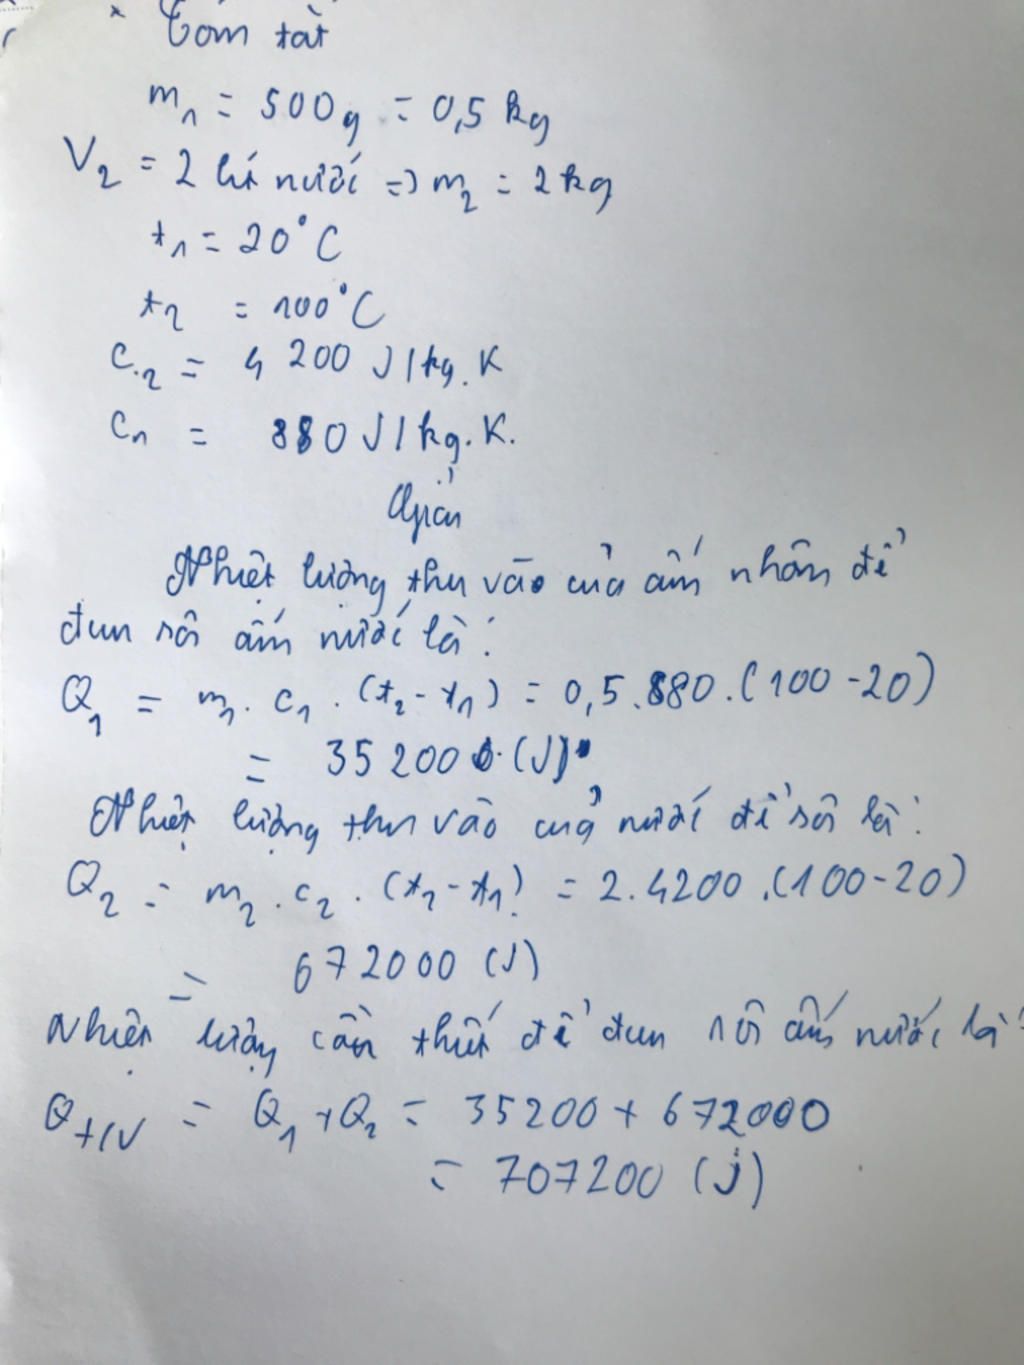 * Tóm tắt
m₁ = 500g = 0,5 kg
V₂ = 2 lít nước => m₂ = 2kg
t₁ = 20°C
t₂ = 100°C
c₂ = 4 200 J/kg.K
c₁ = 880 J/kg.K.
Giải
Nhiệt lượng thu vào của ấm nhôm để
đun sôi ấm nước là:
Q₁ = m₁. c₁ . (t₂ - t₁) = 0,5.880.(100-20)
= 35200 (J)
Nhiệt lượng thu vào của nước để sôi là:
Q₂ = m₂ . c₂ . (t₂-t₁) = 2.4200.(100-20)
= 672000 (J)
Nhiệt lượng cần thiết để đun sôi ấm nước là:
= Q₁ + Q₂ = 35200 + 672000
= 707200 (J)